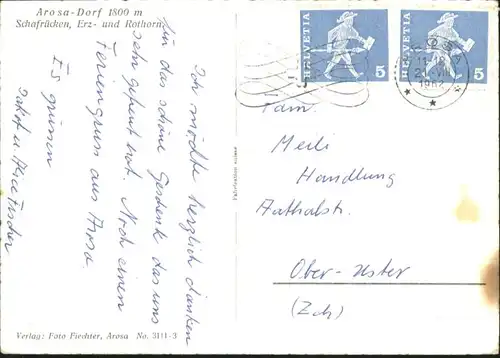 Arosa-Dorf 1800 m
Schafrücken, Erz- und Rothorn
Ich möchte herzlich danken
für das schöne Geschenk das uns
sehr gefreut hat. Noch einen
Feriengruss aus Arosa.
Es grüssen
Jakob u. Alice Fischer
Verlag: Foto Fiechter, Arosa No. 3111-3
HELVETIA 5
HELVETIA 5
AROSA
21. VII
1962
Fam.
Meili
Handlung
Aathalstr.
Ober-Uster
(Zch)